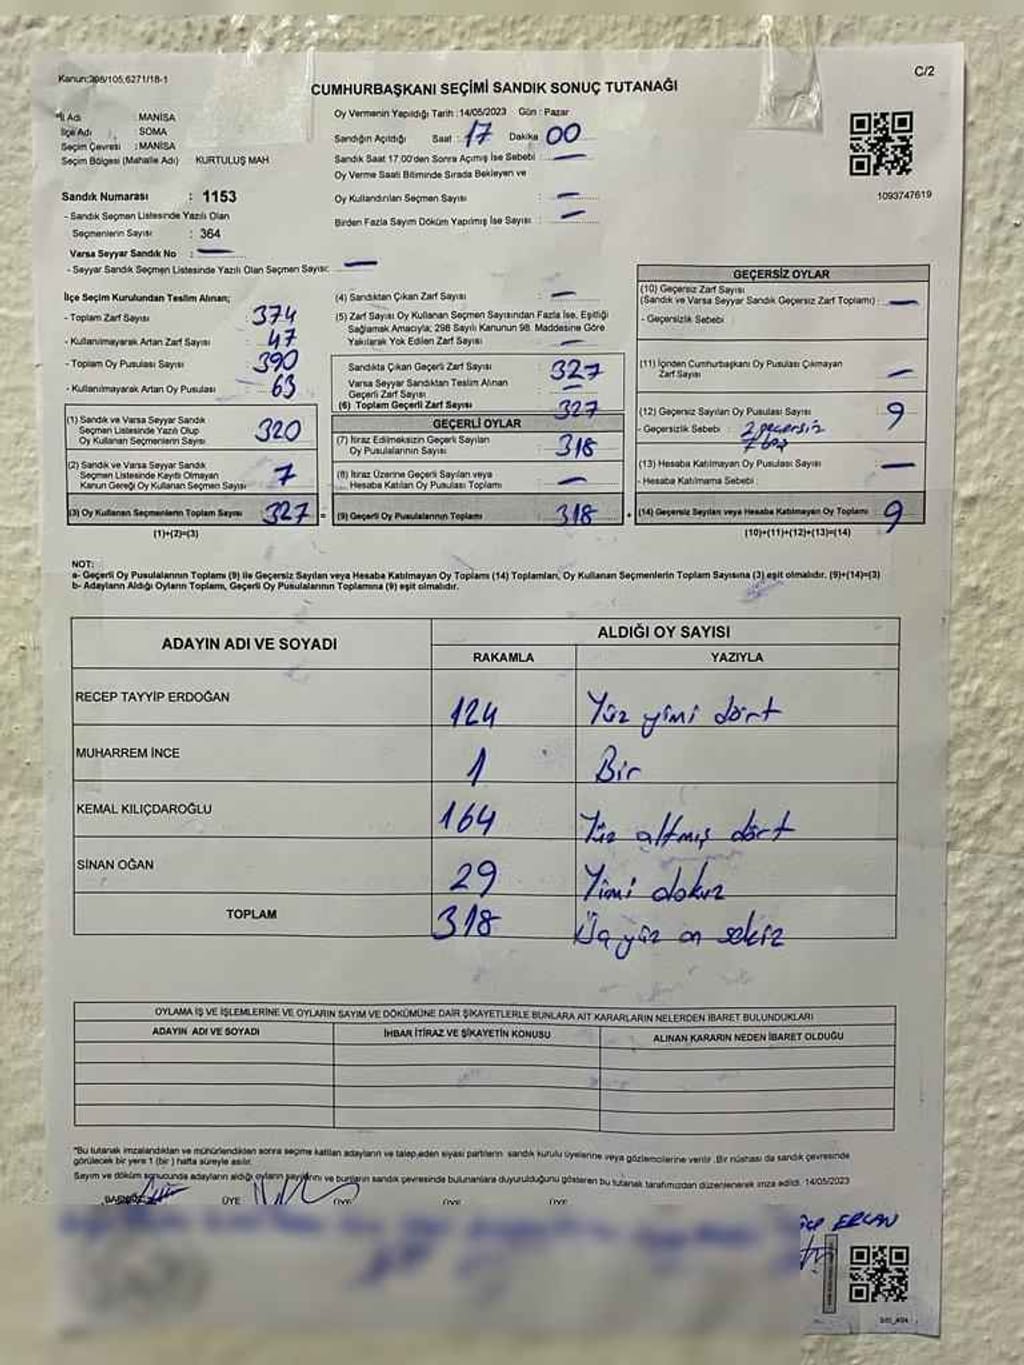 Kanun:298/105,6271/18-1
C/2
CUMHURBAŞKANI SEÇİMİ SANDIK SONUÇ TUTANAĞI
İl Adı : MANİSA
İlçe Adı : SOMA
Seçim Çevresi : MANİSA
Seçim Bölgesi (Mahalle Adı) KURTULUŞ MAH
Sandık Numarası : 1153
- Sandık Seçmen Listesinde Yazılı Olan
Seçmenlerin Sayısı : 364
Varsa Seyyar Sandık No : —
- Seyyar Sandık Seçmen Listesinde Yazılı Olan Seçmen Sayısı: —
Oy Vermenin Yapıldığı Tarih :14/05/2023 Gün : Pazar
Sandığın Açıldığı Saat : 17 Dakika 00
Sandık Saat 17.00'den Sonra Açılmış İse Sebebi : —
Oy Verme Saati Bitiminde Sırada Bekleyen ve
Oy Kullandırılan Seçmen Sayısı : —
Birden Fazla Sayım Döküm Yapılmış İse Sayısı : —
1093747619
İlçe Seçim Kurulundan Teslim Alınan;
- Toplam Zarf Sayısı 374
- Kullanılmayarak Artan Zarf Sayısı 47
- Toplam Oy Pusulası Sayısı 390
- Kullanılmayarak Artan Oy Pusulası 63
(1) Sandık ve Varsa Seyyar Sandık
Seçmen Listesinde Yazılı Olup
Oy Kullanan Seçmenlerin Sayısı 320
(2) Sandık ve Varsa Seyyar Sandık
Seçmen Listesinde Kayıtlı Olmayan
Kanun Gereği Oy Kullanan Seçmen Sayısı 7
(3) Oy Kullanan Seçmenlerin Toplam Sayısı 327 =
(1)+(2)=(3)
(4) Sandıktan Çıkan Zarf Sayısı : —
(5) Zarf Sayısı Oy Kullanan Seçmen Sayısından Fazla İse, Eşitliği
Sağlamak Amacıyla; 298 Sayılı Kanunun 98. Maddesine Göre
Yakılarak Yok Edilen Zarf Sayısı : —
Sandıkta Çıkan Geçerli Zarf Sayısı 327
Varsa Seyyar Sandıktan Teslim Alınan
Geçerli Zarf Sayısı —
(6) Toplam Geçerli Zarf Sayısı 327
GEÇERLİ OYLAR
(7) İtiraz Edilmeksizin Geçerli Sayılan
Oy Pusulalarının Sayısı 318
(8) İtiraz Üzerine Geçerli Sayılan veya
Hesaba Katılan Oy Pusulası Toplamı —
(9) Geçerli Oy Pusulalarının Toplamı 318 +
GEÇERSİZ OYLAR
(10) Geçersiz Zarf Sayısı
(Sandık ve Varsa Seyyar Sandık Geçersiz Zarf Toplamı) : —
- Geçersizlik Sebebi :
(11) İçinden Cumhurbaşkanı Oy Pusulası Çıkmayan
Zarf Sayısı —
(12) Geçersiz Sayılan Oy Pusulası Sayısı 9
- Geçersizlik Sebebi : 2 geçersiz
7 boş
(13) Hesaba Katılmayan Oy Pusulası Sayısı —
- Hesaba Katılmama Sebebi :
(14) Geçersiz Sayılan veya Hesaba Katılmayan Oy Toplamı 9
(10)+(11)+(12)+(13)=(14)
NOT:
a- Geçerli Oy Pusulalarının Toplamı (9) ile Geçersiz Sayılan veya Hesaba Katılmayan Oy Toplamı (14) Toplamları, Oy Kullanan Seçmenlerin Toplam Sayısına (3) eşit olmalıdır. (9)+(14)=(3)
b- Adayların Aldığı Oyların Toplamı, Geçerli Oy Pusulalarının Toplamına (9) eşit olmalıdır.
ADAYIN ADI VE SOYADI
ALDIĞI OY SAYISI
RAKAMLA YAZIYLA
RECEP TAYYİP ERDOĞAN 124 Yüz yimi dört
MUHARREM İNCE 1 Bir
KEMAL KILIÇDAROĞLU 164 Yüz altmış dört
SİNAN OĞAN 29 Yimi dokuz
TOPLAM 318 Üç yüz on sekiz
OYLAMA İŞ VE İŞLEMLERİNE VE OYLARIN SAYIM VE DÖKÜMÜNE DAİR ŞİKAYETLERLE BUNLARA AİT KARARLARIN NELERDEN İBARET BULUNDUKLARI
ADAYIN ADI VE SOYADI İHBAR İTİRAZ VE ŞİKAYETİN KONUSU ALINAN KARARIN NEDEN İBARET OLDUĞU
*Bu tutanak imzalandıktan ve mühürlendikten sonra seçime katılan adayların ve talep eden siyasi partilerin sandık kurulu üyelerine veya gözlemcilerine verilir. Bir nüshası da sandık çevresinde
görülecek bir yere 1 (bir) hafta süreyle asılır.
Sayım ve döküm sonucunda adayların aldığı oyların sayılarını ve bunların sandık çevresinde bulunanlara duyurulduğunu gösteren bu tutanak tarafımızdan düzenlenerek imza edildi. 14/05/2023
BAŞKAN ÜYE ÜYE ÜYE ÜYE
ERCAN